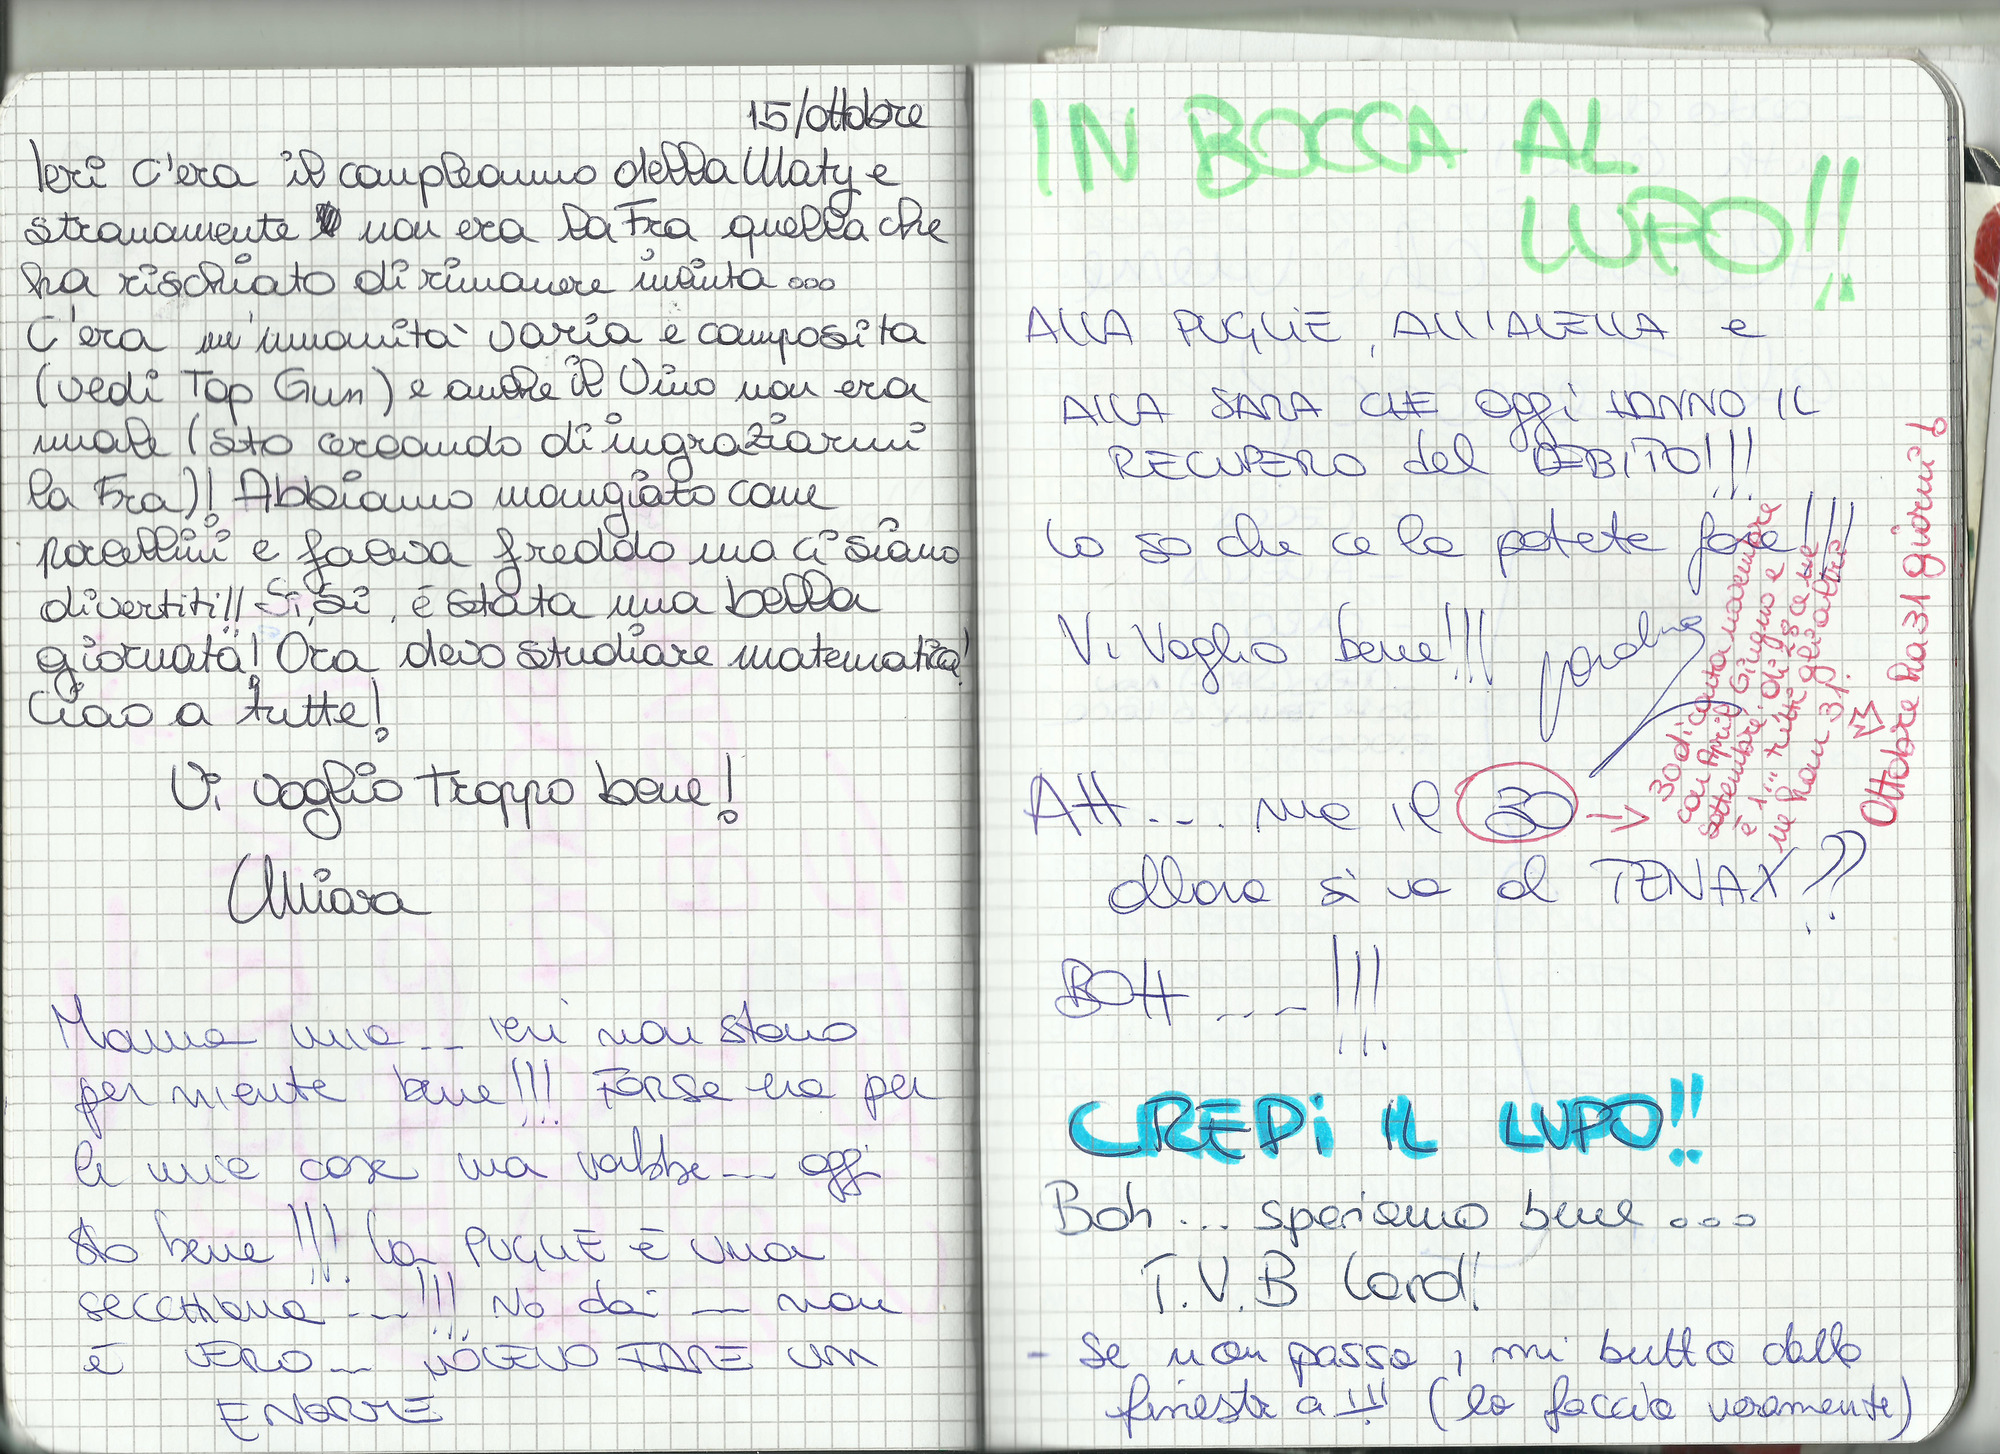 15/ottobre
Ieri c'era il compleanno della Maty e
stranamente non era la Fra quella che
ha rischiato di rimanere incinta...
C'era un'umanità varia e composita
(vedi Top Gun) e anche il Vino non era
male (sto cercando di ingraziarmi
la Fra)! Abbiamo mangiato come
porcellini e faceva freddo ma ci siamo
divertiti!! Si, si, è stata una bella
giornata! Ora devo studiare matematica!
Ciao a tutte!
Vi voglio troppo bene!
Chiara
Mamma mia... ieri non stavo
per niente bene!!! Forse era per
le mie cose ma vabbe... oggi
sto bene!!! la PUGLIE è una
secchiona...!!! No dai... non
è VERO... VOLEVO FARE UM
ENORME
IN BOCCA AL
LUPO!!
ALLA PUGLIE, ALL'ALELLA e
ALLA SARA CHE oggi HANNO IL
RECUPERO del DEBITO!!!
lo so che ce la potete fare!!!
Vi Voglio bene!!!
AH... ma il 30
allora si va al TENAX??
BOH...!!!
30 di conta novembre
con April, Giugno e
settembre. Di 28 ce ne
è 1... tutti gli altri
ne han 31.
Ottobre ha 31 giorni!
CREPI IL LUPO!!
Boh... speriamo bene...
T.V.B Card!
- Se non passo, mi butto dalla
finestra!!! (lo faccio veramente)